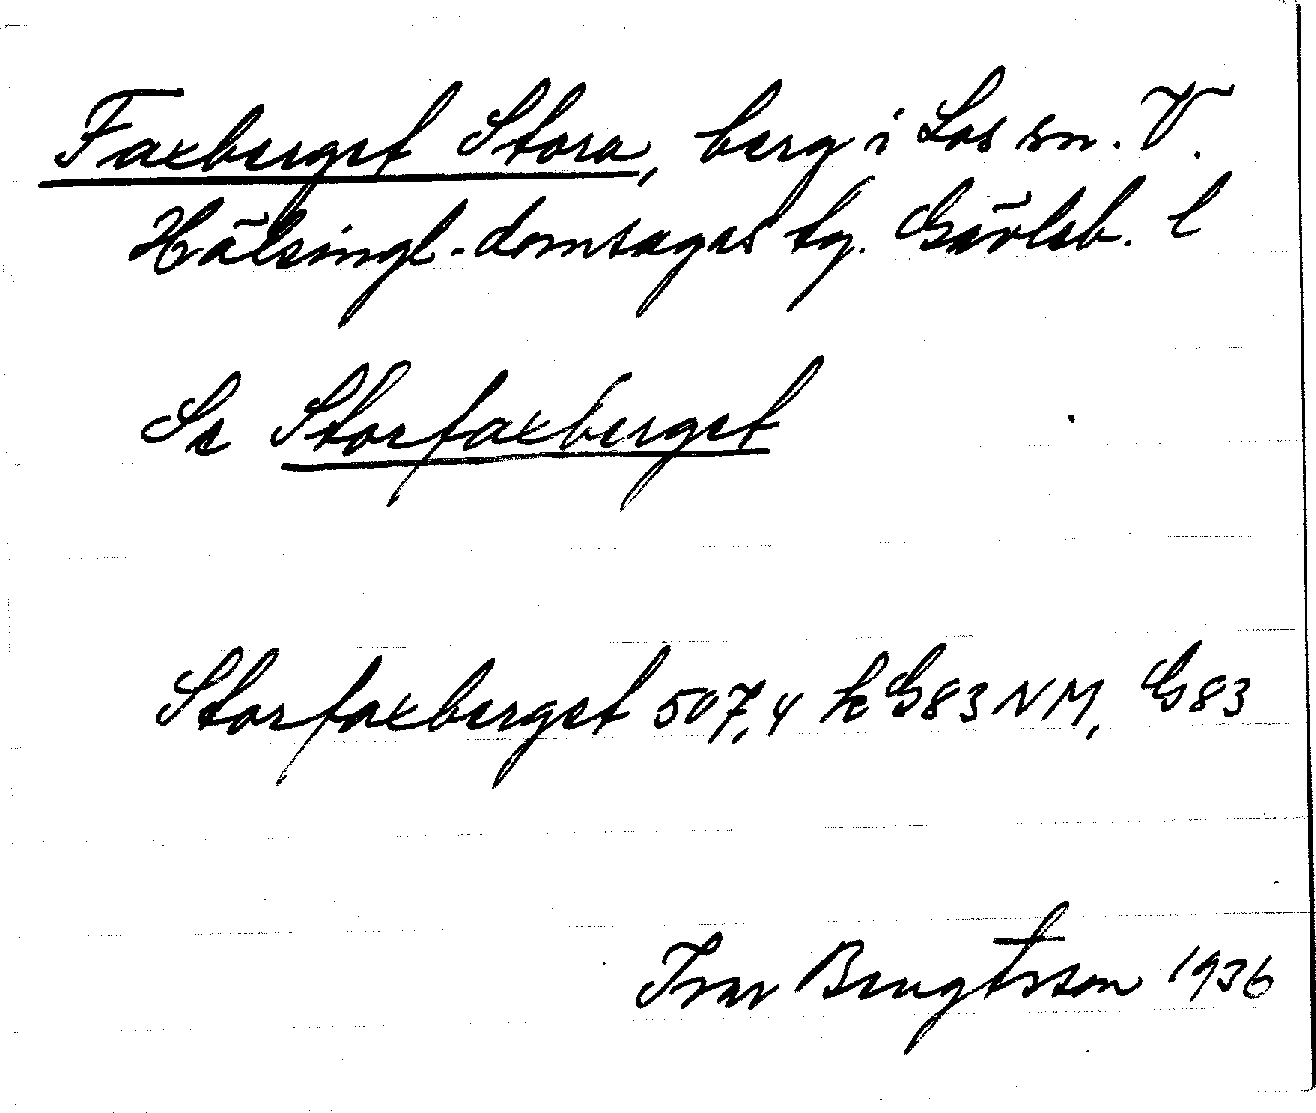 Faxberget Stora, berg i Los sn. V.
Hälsingl. domsagas tg. Gävleb. l
Se Storfaxberget
Storfaxberget 507,4 k G83NM, G83
Ivar Bengtsson 1936